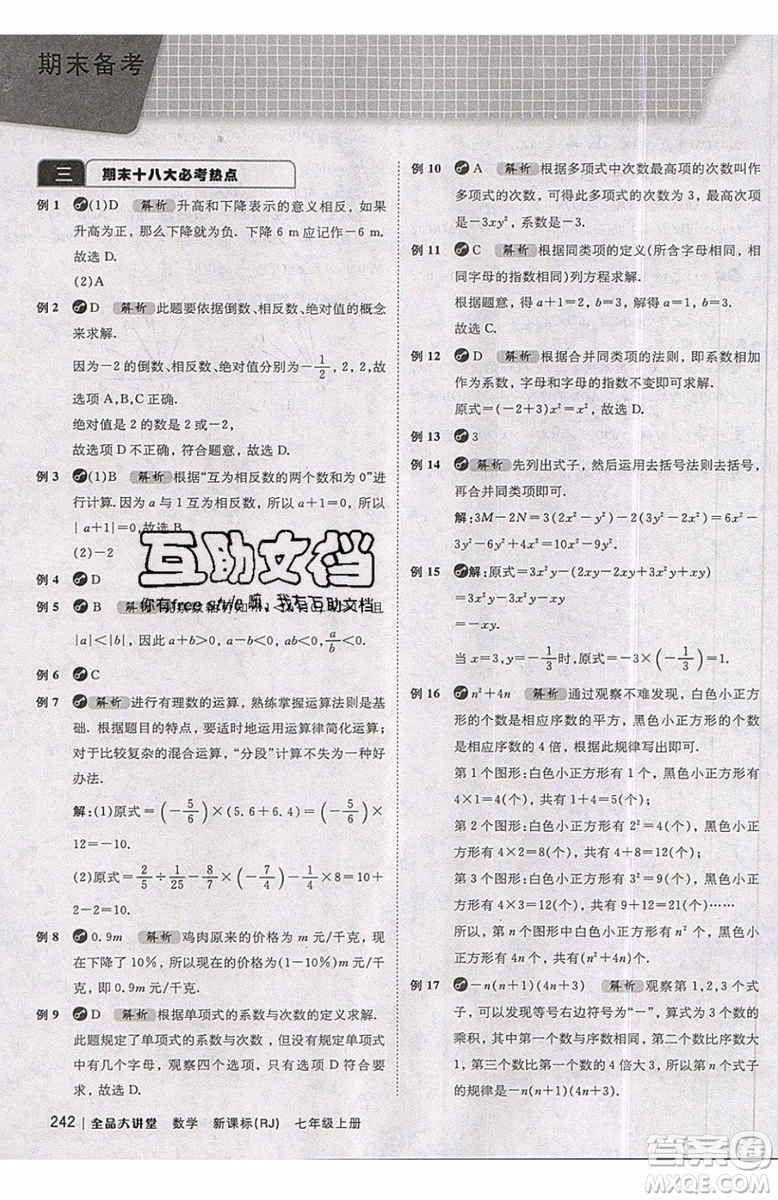 期末备考
三 期末十八大必考热点
例 1 (1)D 解析 升高和下降表示的意义相反，如果
升高为正，那么下降就为负．下降 6 m 应记作－6 m.
故选 D.
(2)A
例 2 D 解析 此题要依据倒数、相反数、绝对值的概念
来求解．
因为－2 的倒数、相反数、绝对值分别是－1/2，2，2，故
选项 A,B,C 正确．
绝对值是 2 的数是 2 或－2，
故选项 D 不正确，符合题意，故选 D.
例 3 (1)B 解析 根据“互为相反数的两个数和为 0”进
行计算．因为 a 与 1 互为相反数，所以 a＋1＝0，所以
|a＋1|＝0.故选 B.
(2)－2
例 4 D
例 5 B 解析
|a|＜|b|，故 a＋b＞0，a－b＜0，ab＜0，a/b＜0.
例 6 C
例 7 解析 进行有理数的运算，熟练掌握运算法则是
基础．根据题目的特点，要适时地运用运算律简化运算；
对于比较复杂的混合运算，“分段”计算不失为一种好
办法．
解：(1)原式＝(－5/6)×(5.6＋6.4)＝(－5/6)×
12＝－10.
(2)原式＝2/5÷1/25－8/7×7/4＝2/5×25－2＝10－
2－2＝6.
例 8 0.9m 解析 鸡肉原来的价格为 m 元/千克，现
在下降了 10%，所以现在的价格为(1－10%)m＝
0.9m 元/千克．
例 9 D 解析 根据单项式的系数与次数的定义求解．
此题规定了单项式的系数与次数，但不同的单项式中
字母不确定，观察四个选项，只有选项 D 符合要求，
所以选 D.
242 全品大讲堂 数学 新课标(RJ) 七年级上册
例 10 A 解析 根据多项式中次数最高项的次数叫作
多项式的次数，可得此多项式的次数为 3，最高次项
是－3xy²，系数是－3.
例 11 C 解析 根据同类项的定义(所含字母相同，相
同字母的指数相同)列方程求解．
根据题意，得 a＋1＝2，b＝3，解得 a＝1，b＝3.
故选 C.
例 12 D 解析 根据合并同类项的法则，即系数相加
作为系数，字母和字母的指数不变即可求解．
原式＝(－2＋3)x²＝x²，故选 D.
例 13 3
例 14 解析 先列出式子，然后运用去括号法则去括号，
再合并同类项即可．
解：3M－2N＝3(2x²－y²)－2(x²－2y²)＝6x²－
3y²－2x²＋4y²＝4x²＋y².
例 15 解：原式＝3x²y－(2x²y－2xy＋x²y＋3xy)
＝3x²y－(3x²y＋xy)
＝－xy.
当 x＝3，y＝－1/3时，－xy＝－3×(－1/3)＝1.
例 16 n²＋4n 解析 通过观察不难发现，白色小正方
形的个数是相应序数的平方，黑色小正方形的个数
是相应序数的 4 倍，根据此规律写出即可．
第 1 个图形：白色小正方形有 1 个，黑色小正方形有
4×1＝4(个)，共有 1＋4＝5(个)，
第 2 个图形：白色小正方形有 2²＝4(个)，黑色小正
方形有 4×2＝8(个)，共有 4＋8＝12(个)，
第 3 个图形：白色小正方形有 3²＝9(个)，黑色小正
方形有 4×3＝12(个)，共有 9＋12＝21(个)……
所以，第 n 个图形：白色小正方形有 n² 个，黑色小正
方形有 4n 个，共有(n²＋4n)个．
例 17 －n(n＋1)(4n＋3) 解析 观察第 1,2,3 个式
子，可以发现等号右边符号为“－”，算式为 3 个数的
乘积，其中第一个数与序数相同，第二个数比序数大 1，
第三个数比第一个数的 4 倍大 3.所以第 n 个式子
的规律是－n(n＋1)(4n＋3).
互助文档
你有free style嘛，我有互助文档
答案圈
MXQE.COM